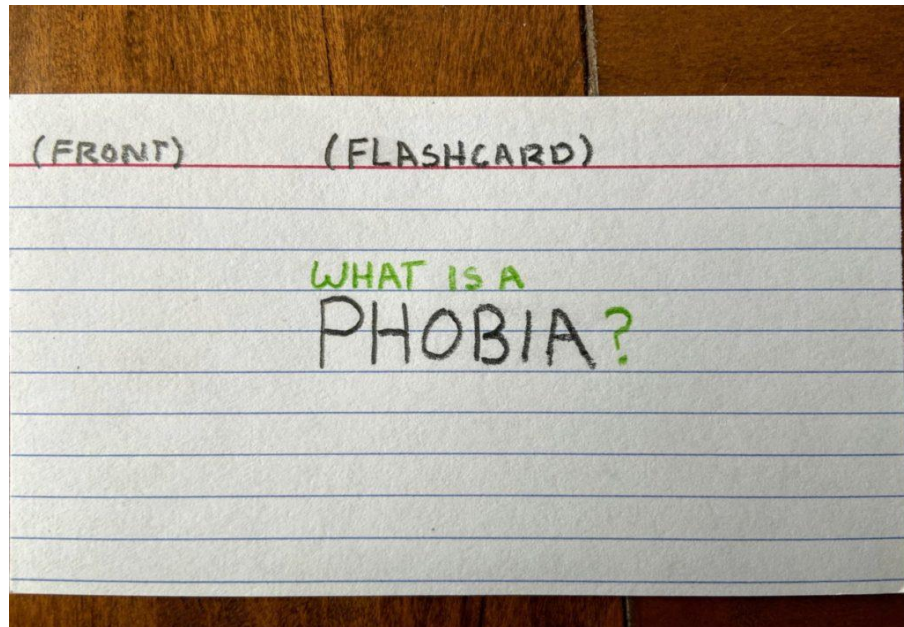 (FRONT) (FLASHCARD)
WHAT IS A
PHOBIA?